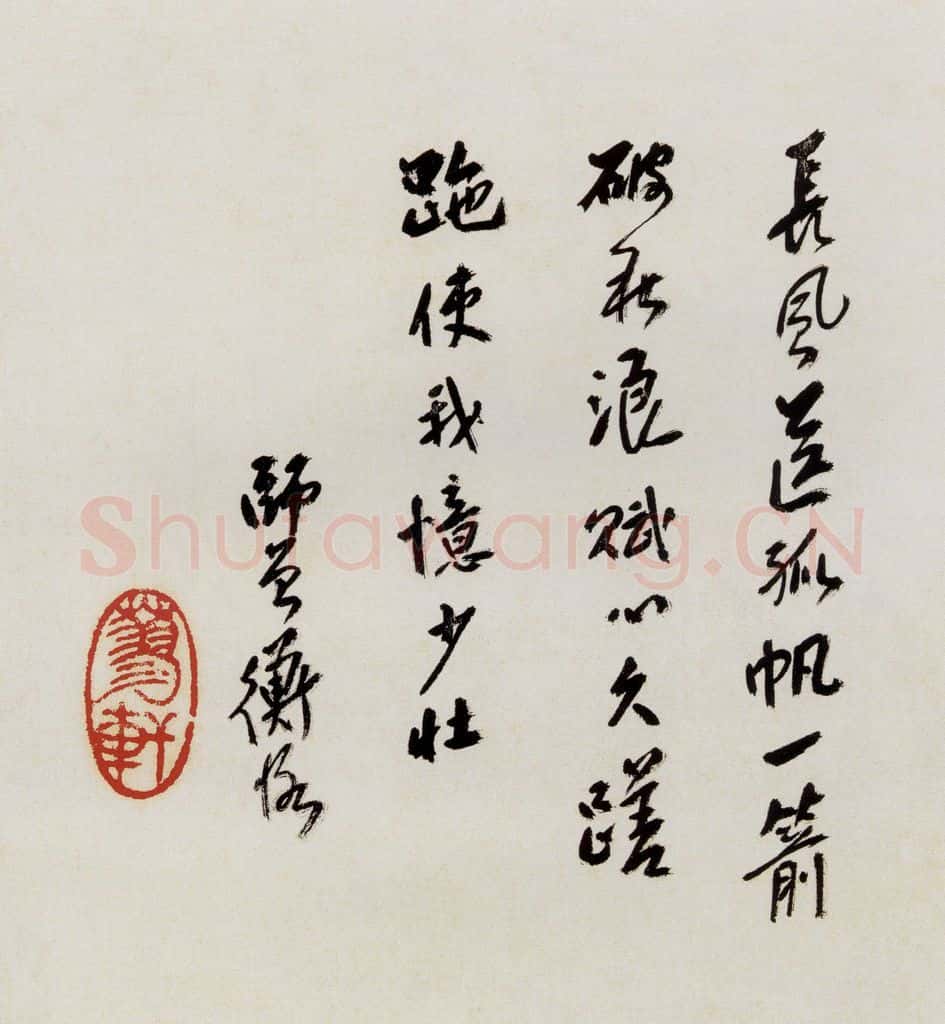 長風送孤帆一箭
破秋浪賦心久蹉
跎使我憶少壯
師曾衡恪
軒
Shufawang.CN